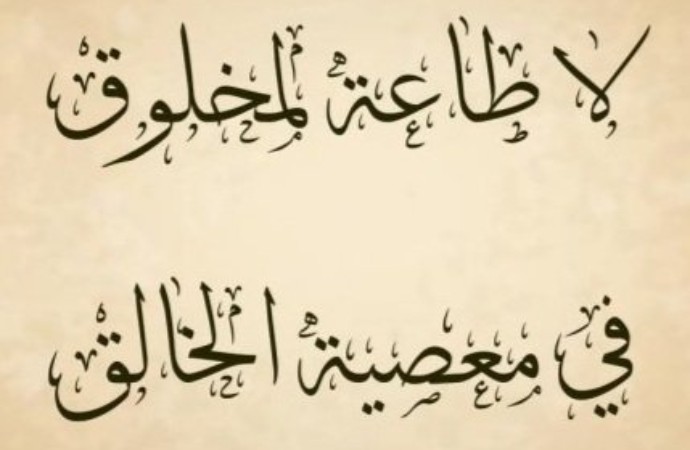 لا طاعة لمخلوق
في معصية الخالق